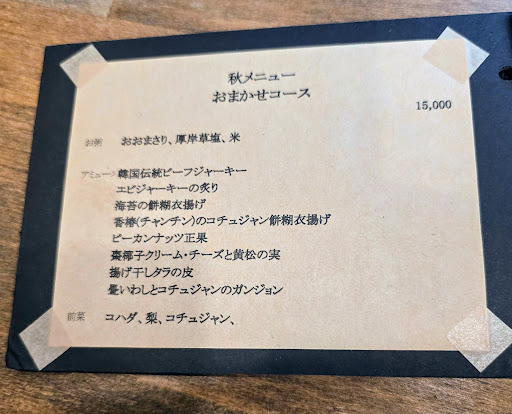 秋メニュー
おまかせコース
15,000
お粥 おおまさり、厚岸草塩、米
アミューズ 韓国伝統ビーフジャーキー
エビジャーキーの炙り
海苔の餅糊衣揚げ
香椿(チャンチン)のコチュジャン餅糊衣揚げ
ピーカンナッツ正果
棗椰子クリーム・チーズと黄松の実
揚げ干しタラの皮
畳いわしとコチュジャンのガンジョン
前菜 コハダ、梨、コチュジャン、